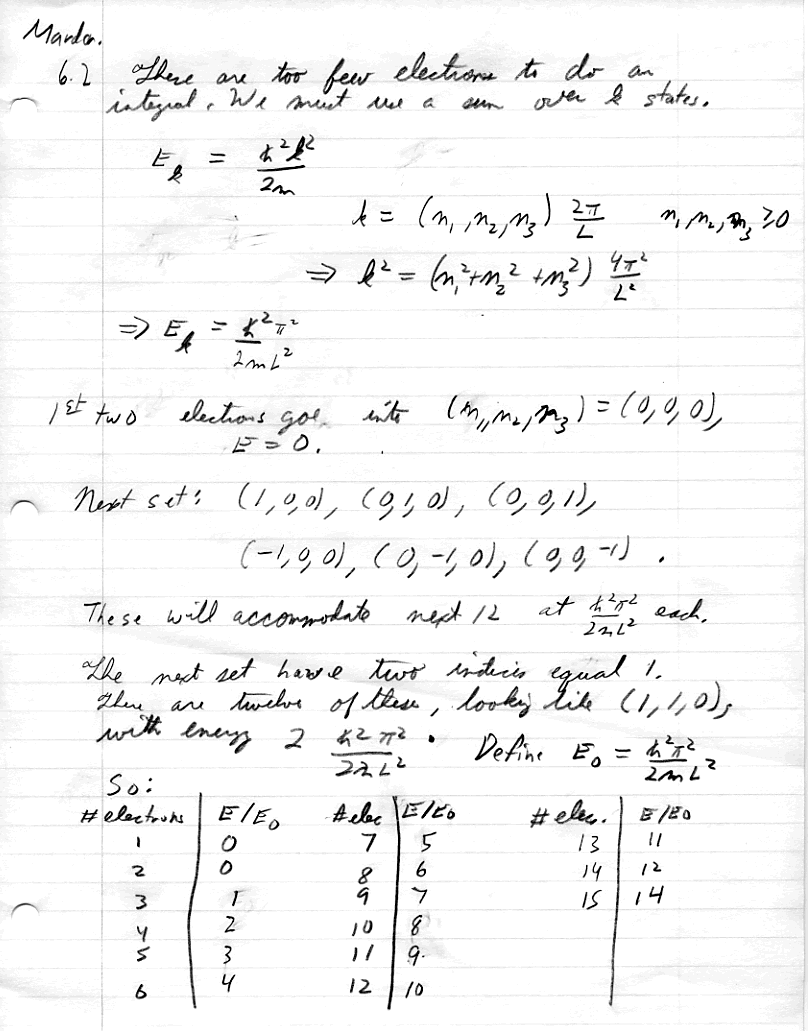 Marder.
6.2 There are too few electrons to do an
integral. We must use a sum over k states.
E_k = ħ²k²/2m
k = (n₁, n₂, n₃) 2π/L n₁, n₂, n₃ ≥ 0
⇒ k² = (n₁² + n₂² + n₃²) 4π²/L²
⇒ E_k = ħ²π²/2mL²
1st two electrons goe into (n₁, n₂, n₃) = (0, 0, 0),
E = 0.
Next set: (1, 0, 0), (0, 1, 0), (0, 0, 1),
(-1, 0, 0), (0, -1, 0), (0, 0, -1).
These will accommodate next 12 at ħ²π²/2mL² each.
The next set have two indices equal 1.
There are twelve of these, looking like (1, 1, 0),
with energy 2 ħ²π²/2mL². Define E₀ = ħ²π²/2mL²
So:
# electrons E/E₀ # elec E/E₀ # elec. E/E₀
1 0 7 5 13 11
2 0 8 6 14 12
3 1 9 7 15 14
4 2 10 8
5 3 11 9.
6 4 12 10